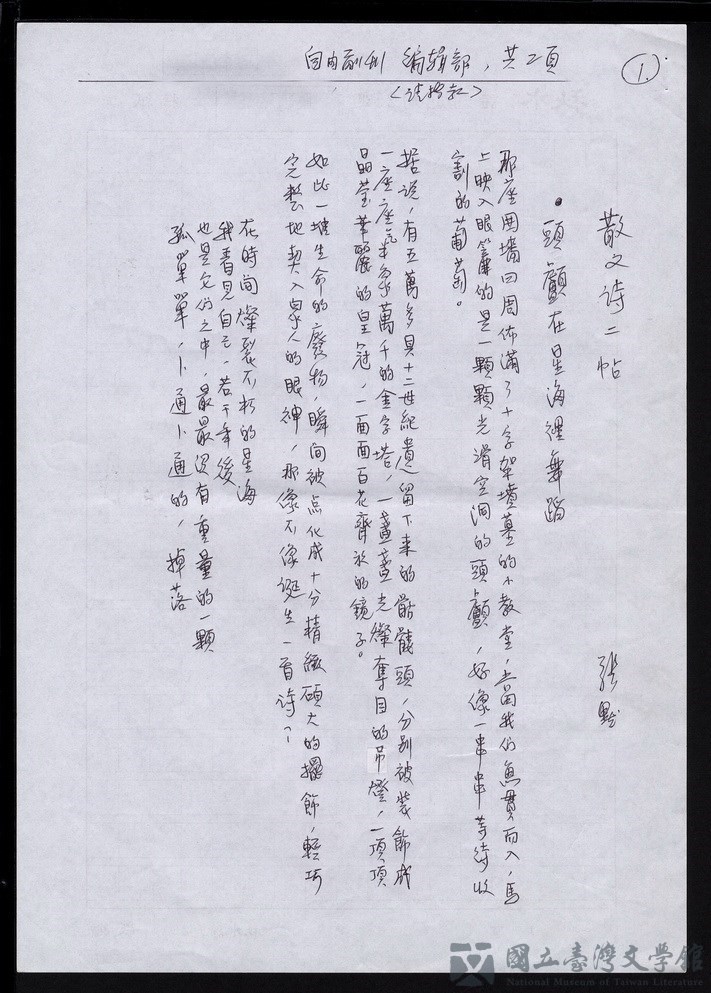 自由副刊 編輯部，共二頁
〈請撥款〉
1.
散文詩二帖
張默
•頭顱在星海裡舞蹈
那座圍墻四周佈滿了十字架墳墓的小教堂，當我們魚貫而入，馬
上映入眼簾的是一顆顆光滑空洞的頭顱，好像一串串等待收
割的葡萄。
据说，有五萬多具十二世紀遺留下来的骷髏頭，分别被裝飾成
一座座气象萬千的金字塔，一盞盞光燦奪目的吊燈，一項項
晶莹華麗的皇冠，一面面百花齊放的鏡子。
如此一堆生命的廢物，瞬间被点化成十分精緻碩大的擺飾，輕巧
完整地契入眾人的眼神，那像不像诞生一首诗？
在時间燦裂不朽的星海
我看見自己，若干年後
也是它们之中，最最沒有重量的一顆
孤單單，卜通卜通的，掉落
國立臺灣文學館
National Museum of Taiwan Literature